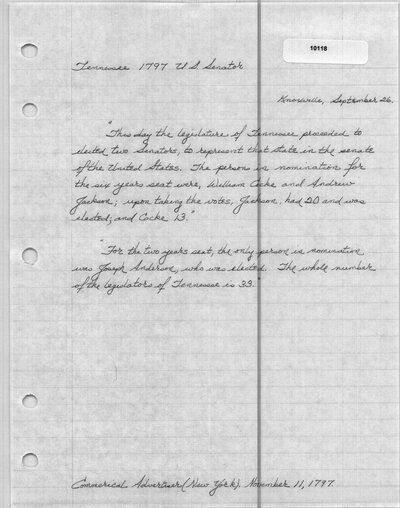 10118
Tennessee 1797 U.S. Senator
Knoxville, September 26.
"This day the legislature of Tennessee proceeded to
elected two Senators, to represent that state in the senate
of the United States. The persons in nomination for
the six years seat were, William Cocke and Andrew
Jackson; upon taking the votes, Jackson, had 20 and was
elected; and Cocke 13."
"For the two years seat, the only person in nomination
was Joseph Anderson, who was elected. The whole number
of the legislators of Tennessee is 33."
Commerical Advertiser (New York). November 11, 1797.